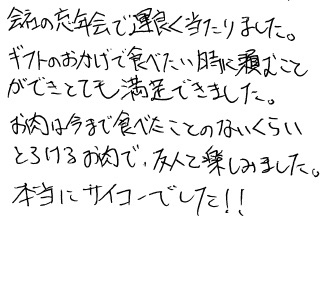 会社の忘年会で運良く当たりました。
ギフトのおかげで食べたい時に頼むこと
ができとても満足できました。
お肉は今まで食べたことのないくらい
とろけるお肉で、友人と楽しみました。
本当にサイコーでした!!